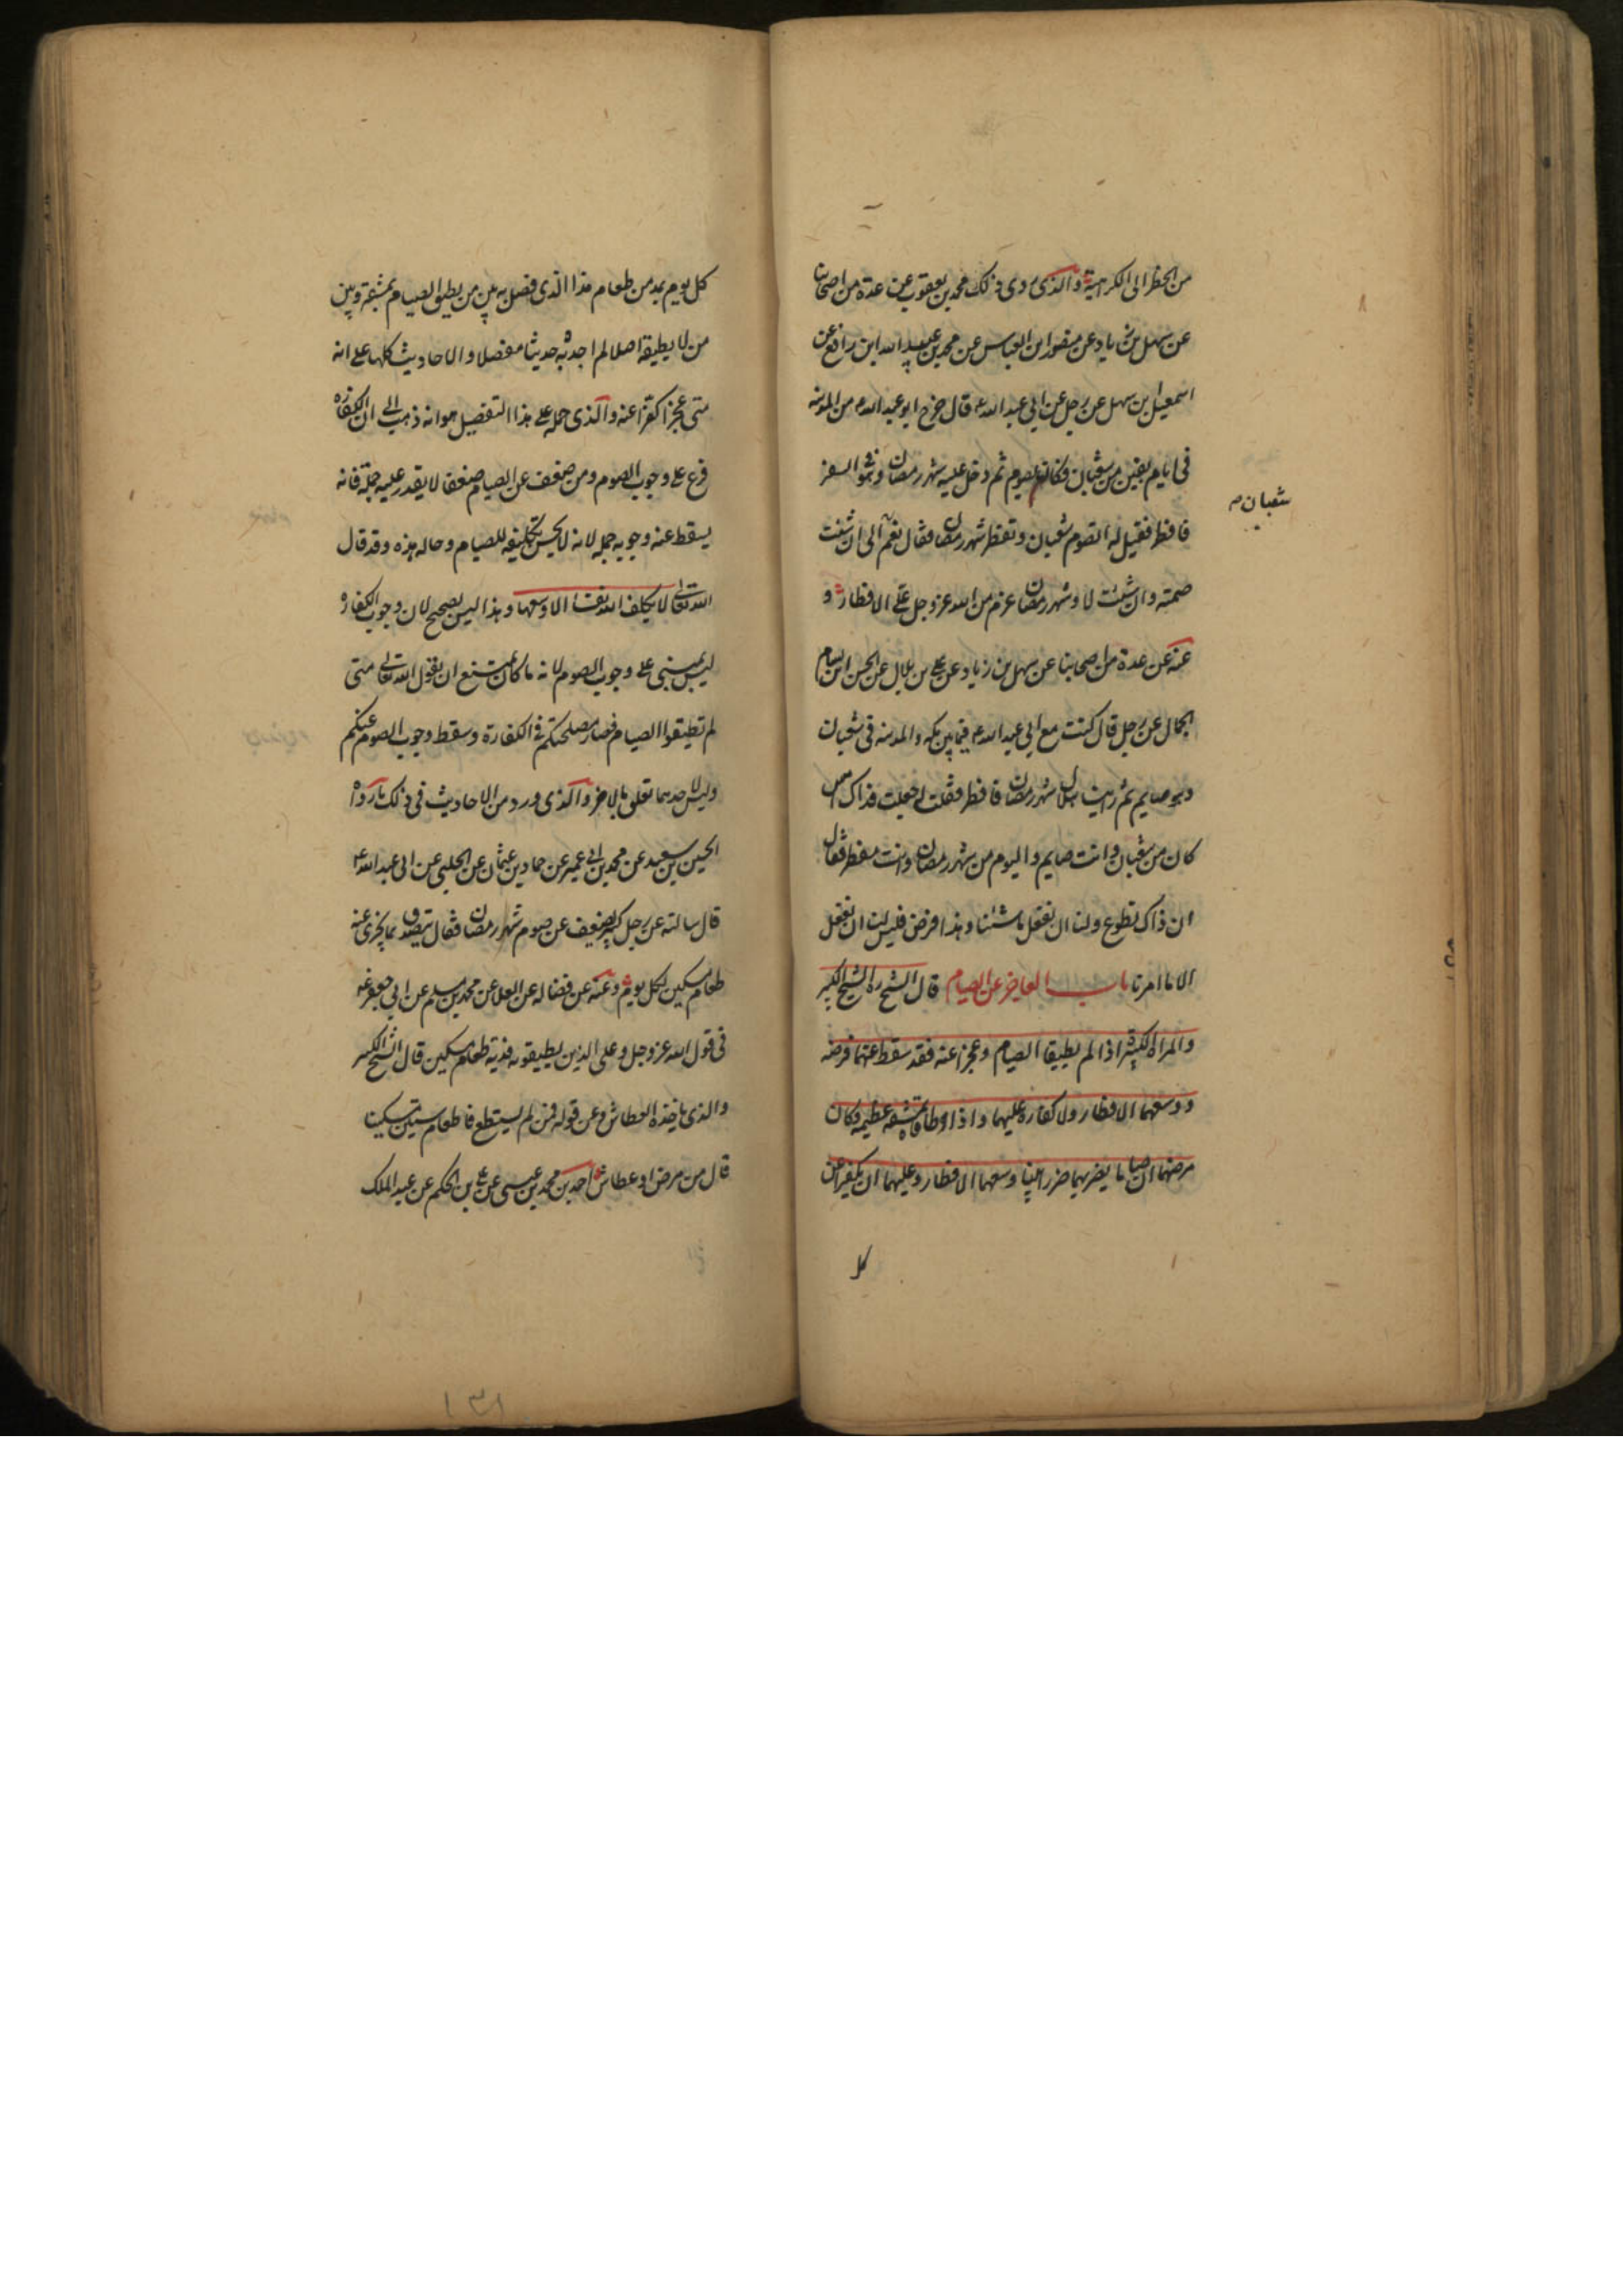 من الحظر الى الكراهية والذى روى ذلك محمد بن يعقوب عن عدة من اصحابنا
عن سهل بن زياد عن منصور ابن العباس عن محمد بن عبيد الله ابن رافع عن
اسمعيل بن سهل عن رجل عن ابي عبد الله ع قال خرج ابو عبد الله ع من المدينه
فى ايام بقين من شعبان فكان يصوم ثم دخل عليه شهر رمضان وهو فى السفر
شعبان ص
فافطر فقيل له اتصوم شعبان وتفطر شهر رمضان فقال نعم الى ان شئت
صمته وان شئت لا وشهر رمضان عزم من الله عز وجل على الافطار و
عنه عن عدة من اصحابنا عن سهل بن زياد عن على بن بلال عن الحسن ابن بسام
الجمال عن رجل قال كنت مع ابي عبد الله ع فيما بين مكه والمدينه فى شعبان
وهو صايم ثم راينا هلال شهر رمضان فافطر فقلت له جعلت فداك امس
كان من شعبان وانت صايم واليوم من شهر رمضان وانت مفطر فقال
ان ذاك تطوع ولنا ان نفعل ما شئنا وهذا فرض فليس لنا ان نفعل
الا ما امرنا باب العاجز عن الصيام قال الشيخ ره الشيخ الكبير
والمراة الكبيرة اذا لم يطيقا الصيام وعجزا عنه فقد سقط عنهما فرضه
ووسعهما الافطار ولا كفارة عليهما واذا اطاقاه بمشقه عظيمه فكان
مرضهما ان صاما يضر بهما ضررا بينا وسعهما الافطار وعليهما ان يكفرا عن
كل
كل يوم بمد من طعام هذا الذى فصل به بين من يطيق الصيام بمشقة وبين
من لا يطيقه اصلا لم اجد به حديثا مفصلا والاحاديث كلها على انه
متى عجزا كفرا عنه والذى حمله على هذا التفصيل هو انه ذهب الى ان الكفارة
فرع على وجوب الصوم ومن ضعف عن الصيام ضعفا لا يقدر عليه جملة فانه
يسقط عنه وجوبه جمله لانه لا يحسن تكليفه للصيام وحاله هذه وقد قال
الله تعالى لا يكلف الله نفسا الا وسعها وهذا ليس بصحيح لان وجوب الكفارة
ليس بمبنى على وجوب الصوم لانه ما كان يمتنع ان يقول الله تعالى متى
لم تطيقوا الصيام فصار مصلحتكم فى الكفارة وسقط وجوب الصوم عنكم
وليس لاحدهما تعلق بالاخر والذى ورد من الاحاديث فى ذلك ما رواه
الحسين بن سعيد عن محمد بن ابي عمير عن حماد بن عثمان عن الحلبي عن ابي عبد الله ع
قال سالته عن رجل كبير ضعيف عن صوم شهر رمضان فقال يتصدق بما يجزى عنه
طعام مسكين لكل يوم وعنه عن فضاله عن العلا عن محمد بن مسلم عن ابي جعفر ع
فى قول الله عز وجل وعلى الذين يطيقونه فدية طعام مسكين قال الشيخ الكبير
والذى ياخذه العطاش وعن قوله فمن لم يستطع فاطعام ستين مسكينا
قال من مرض او عطاش احمد بن محمد بن عيسى عن على بن الحكم عن عبد الملك
١٣١